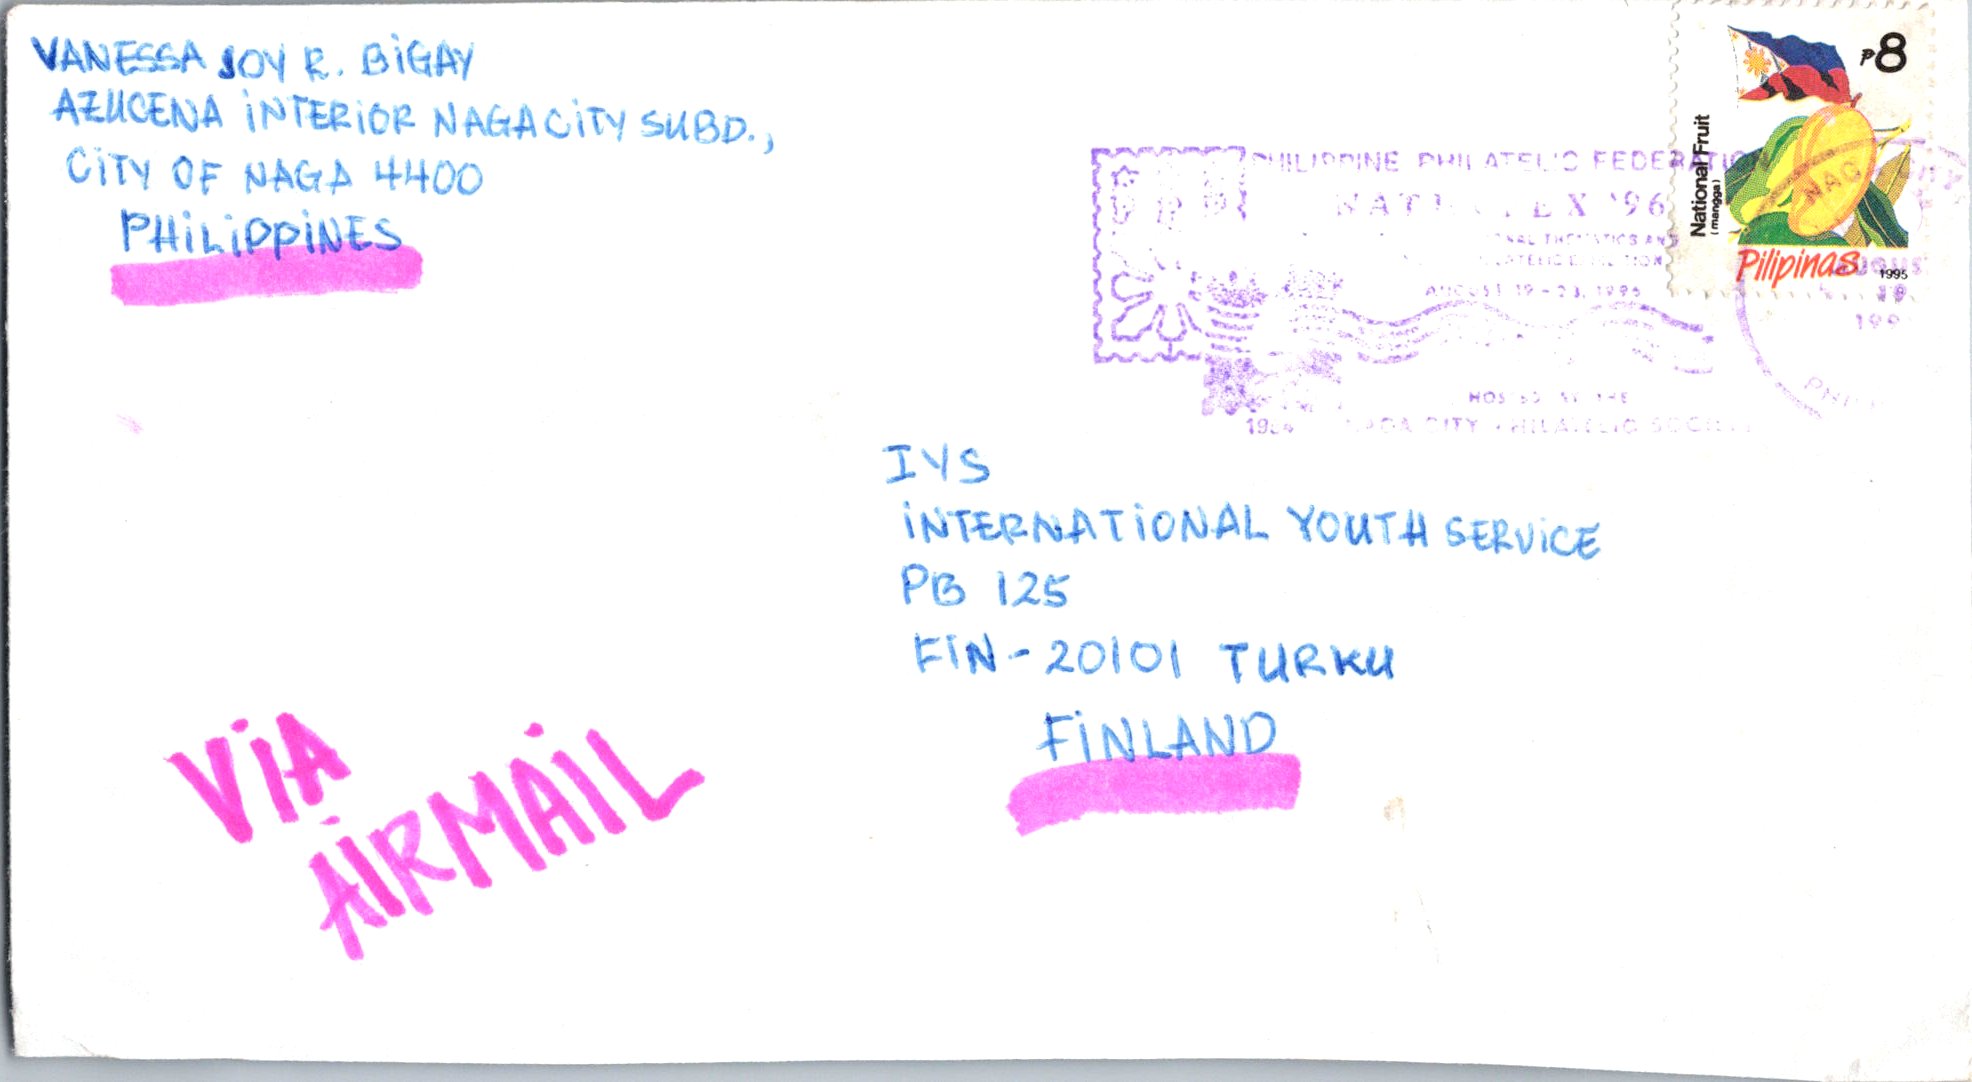 VANESSA JOY R. BIGAY
AZUCENA INTERIOR NAGA CITY SUBD.,
CITY OF NAGA 4400
PHILIPPINES
₱8
National Fruit
(mangga)
Pilipinas 1995
PHILIPPINE PHILATELIC FEDERATION
'96
AUGUST 19-23, 1996
HOSTED BY THE
NAGA CITY PHILATELIC SOCIETY
NAGA
IYS
INTERNATIONAL YOUTH SERVICE
PB 125
FIN-20101 TURKU
FINLAND
VIA
AIRMAIL